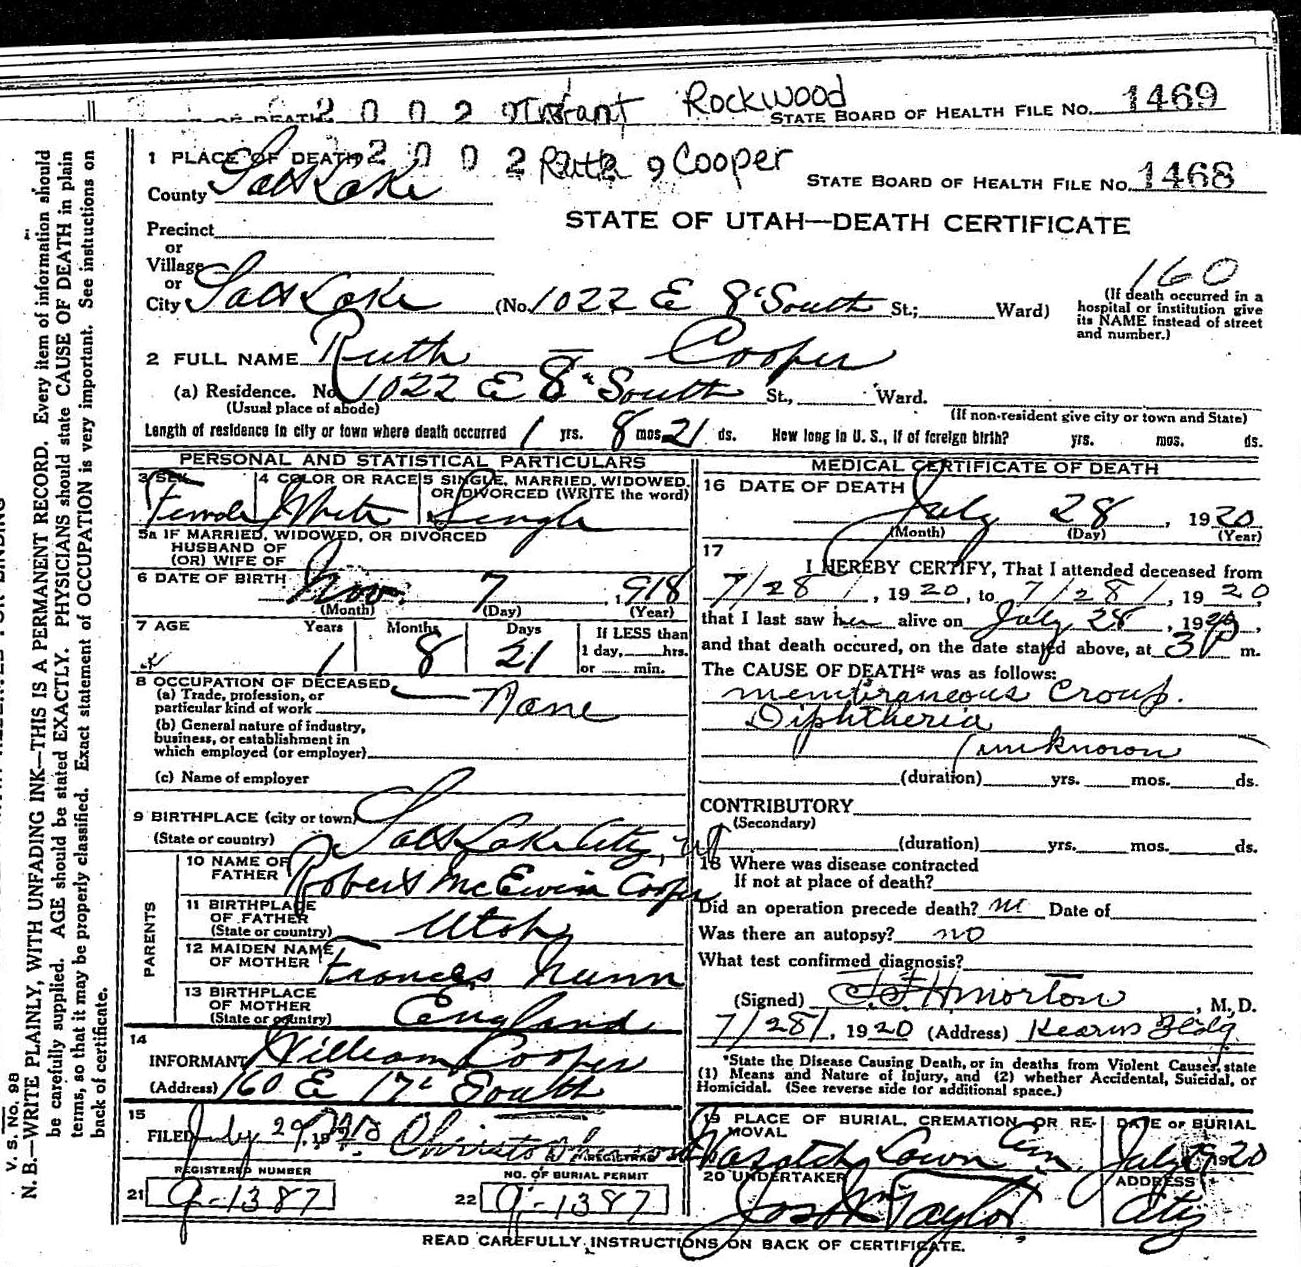 OF DEATH 2 0 0 2 Infant Rockwood STATE BOARD OF HEALTH FILE NO. 1469
1 PLACE OF DEATH 2 0 0 2 Ruth 9 Cooper STATE BOARD OF HEALTH FILE NO. 1468
County Salt Lake
STATE OF UTAH—DEATH CERTIFICATE
Precinct
or
Village
or
City Salt Lake (No. 1022 E 8" South St.; Ward)
160
(If death occurred in a
hospital or institution give
its NAME instead of street
and number.)
2 FULL NAME Ruth — Cooper
(a) Residence. No. 1022 E 8" South St., Ward.
(Usual place of abode) (If non-resident give city or town and State)
Length of residence in city or town where death occurred 1 yrs. 8 mos. 21 ds. How long in U. S., if of foreign birth? yrs. mos. ds.
PERSONAL AND STATISTICAL PARTICULARS
3 SEX 4 COLOR OR RACE 5 SINGLE, MARRIED, WIDOWED,
OR DIVORCED (WRITE the word)
Female White Single
5a IF MARRIED, WIDOWED, OR DIVORCED
HUSBAND OF
(OR) WIFE OF
6 DATE OF BIRTH Nov. 7, 1918
(Month) (Day) (Year)
7 AGE Years Months Days If LESS than
1 8 21 1 day, hrs.
or min.
8 OCCUPATION OF DECEASED
(a) Trade, profession, or
particular kind of work None
(b) General nature of industry,
business, or establishment in
which employed (or employer)
(c) Name of employer
9 BIRTHPLACE (city or town)
(State or country) Salt Lake City, Ut
PARENTS
10 NAME OF
FATHER Robert McEwin Cooper
11 BIRTHPLACE
OF FATHER
(State or country) Utah
12 MAIDEN NAME
OF MOTHER Frances Nunn
13 BIRTHPLACE
OF MOTHER
(State or country) England
14
INFORMANT William Cooper
(Address) 160 E 17" South
15
FILED July 29, 19
REGISTRAR
REGISTERED NUMBER NO. OF BURIAL PERMIT
21 9-1387 22 9-1387
MEDICAL CERTIFICATE OF DEATH
16 DATE OF DEATH
July 28, 1920
(Month) (Day) (Year)
17
I HEREBY CERTIFY, That I attended deceased from
7/28/, 1920, to 7/28/, 1920,
that I last saw her alive on July 28, 1920,
and that death occured, on the date stated above, at 3 P m.
The CAUSE OF DEATH* was as follows:
Membraneous Croup.
Diphtheria
(unknown
(duration) yrs. mos. ds.
CONTRIBUTORY
(Secondary)
(duration) yrs. mos. ds.
18 Where was disease contracted
If not at place of death?
Did an operation precede death? no Date of
Was there an autopsy? no
What test confirmed diagnosis?
(Signed) Morton, M. D.
7/28/, 1920 (Address) Kearns Bldg
*State the Disease Causing Death, or in deaths from Violent Causes, state
(1) Means and Nature of Injury, and (2) whether Accidental, Suicidal, or
Homicidal. (See reverse side for additional space.)
19 PLACE OF BURIAL, CREMATION OR RE-
MOVAL DATE OF BURIAL
Wasatch Lawn Cem. July 29 1920
20 UNDERTAKER ADDRESS
Jos. Wm Taylor City
READ CAREFULLY INSTRUCTIONS ON BACK OF CERTIFICATE.
V. S. NO. 98
N. B.—WRITE PLAINLY, WITH UNFADING INK—THIS IS A PERMANENT RECORD. Every item of information should
be carefully supplied. AGE should be stated EXACTLY. PHYSICIANS should state CAUSE OF DEATH in plain
terms, so that it may be properly classified. Exact statement of OCCUPATION is very important. See instructions on
back of certificate.